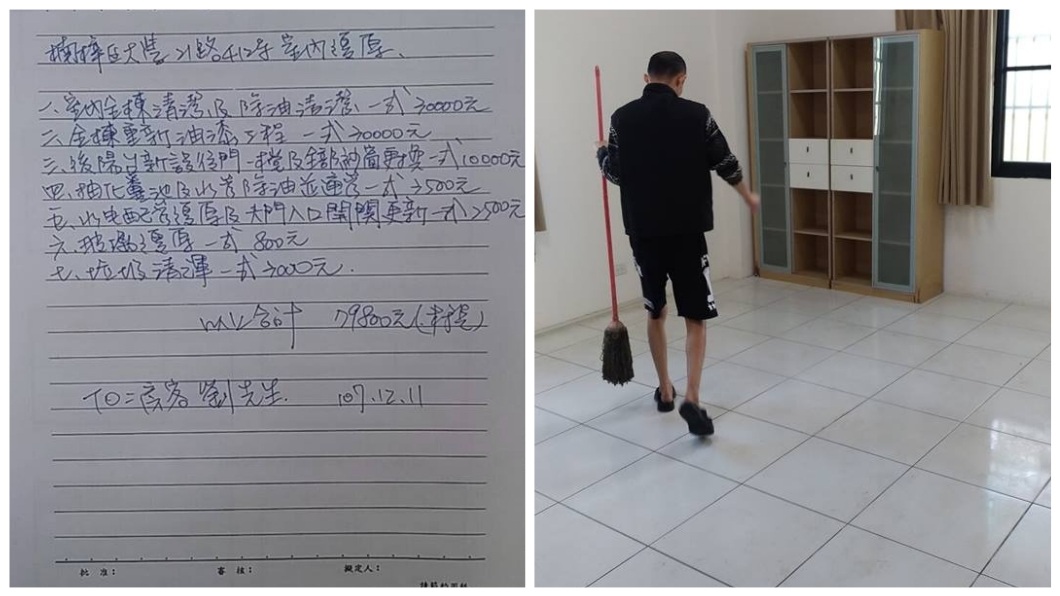 楠梓區大豐2路412号室內復原、
一、室內全棟清潔及除油清潔 一式 30000元
二、全棟重新油漆工程 一式 30000元
三、後陽台新設後門一樘及全部紗窗更換一式10000元
四、抽化糞池及水管除油並通管一式 3500元
五、水電配管復原及大門入口開關更新一式2500元
六、玻璃復原 一式 800元
七、垃圾清運 一式 3000元.
以上合計 79800元(未稅)
TO=房客 劉先生. 107.12.11
批 准: 審 核: 擬定人: